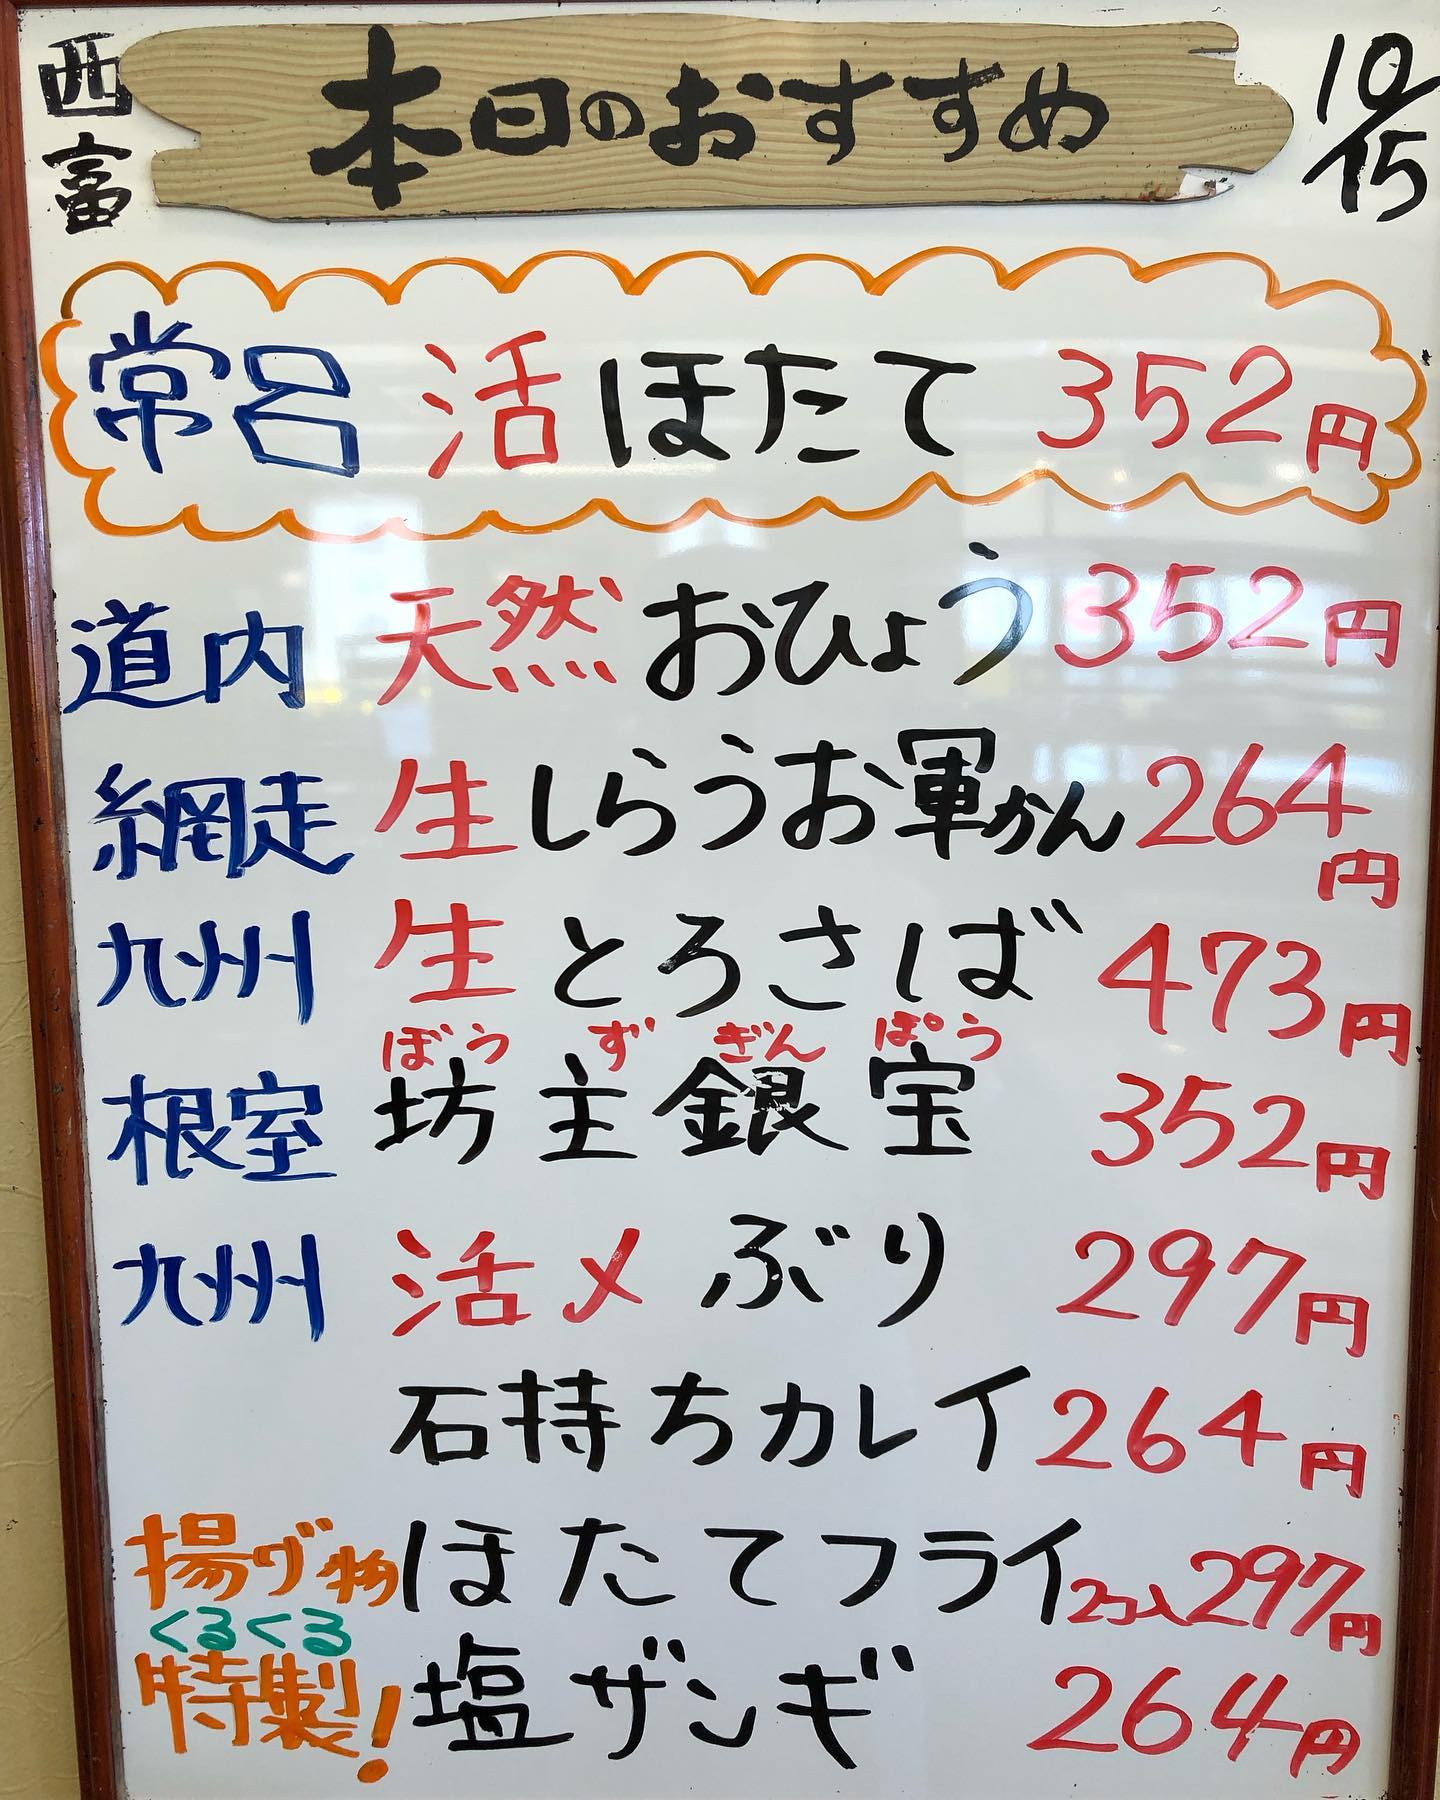 西富
本日のおすすめ
10/15
常呂 活ほたて 352円
道内 天然おひょう 352円
網走 生しらうお軍かん 264円
九州 生とろさば 473円
ぼうずぎんぽう
根室 坊主銀宝 352円
九州 活〆ぶり 297円
石持ちカレイ 264円
揚げ物 ほたてフライ 2コ入 297円
くるくる
特製! 塩ザンギ 264円